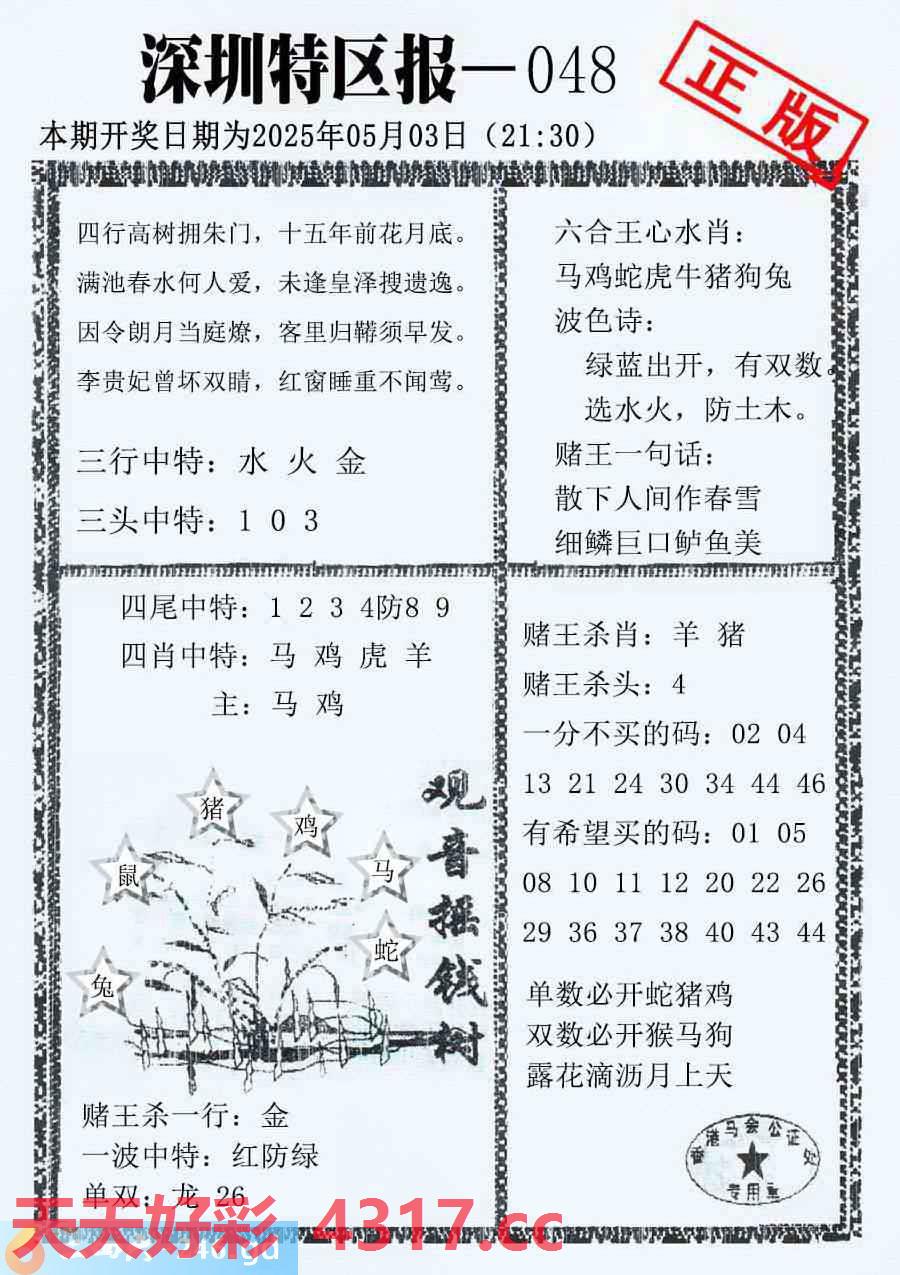 深圳特区报—048
正版
本期开奖日期为2025年05月03日（21:30）
四行高树拥朱门，十五年前花月底。
满池春水何人爱，未逢皇泽搜遗逸。
因令朗月当庭燎，客里归鞯须早发。
李贵妃曾坏双睛，红窗睡重不闻莺。
三行中特：水 火 金
三头中特：1 0 3
六合王心水肖：
马鸡蛇虎牛猪狗兔
波色诗：
绿蓝出开，有双数。
选水火，防土木。
赌王一句话：
散下人间作春雪
细鳞巨口鲈鱼美
四尾中特：1 2 3 4防8 9
四肖中特：马 鸡 虎 羊
主：马 鸡
猪
鸡
鼠
马
蛇
兔
观音摇钱树
赌王杀一行：金
一波中特：红防绿
单双：龙 26
赌王杀肖：羊 猪
赌王杀头：4
一分不买的码：02 04
13 21 24 30 34 44 46
有希望买的码：01 05
08 10 11 12 20 22 26
29 36 37 38 40 43 44
单数必开蛇猪鸡
双数必开猴马狗
露花滴沥月上天
香港马会公证处
专用章
天天好彩 4317.cc